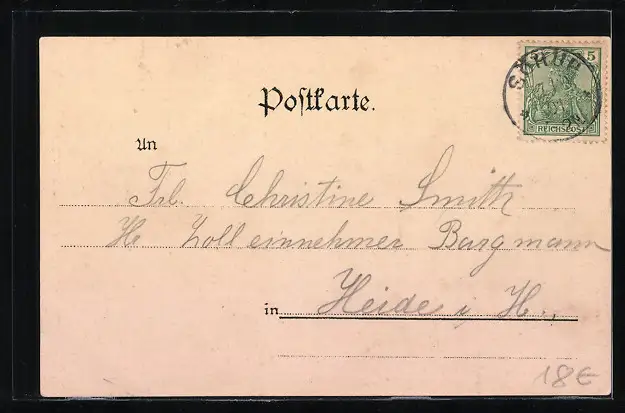 5
REICHSPOST
Postkarte.
An
Frl. Christine Smith
H Zolleinnehmer Bargmann
in Heide i. H.
18€